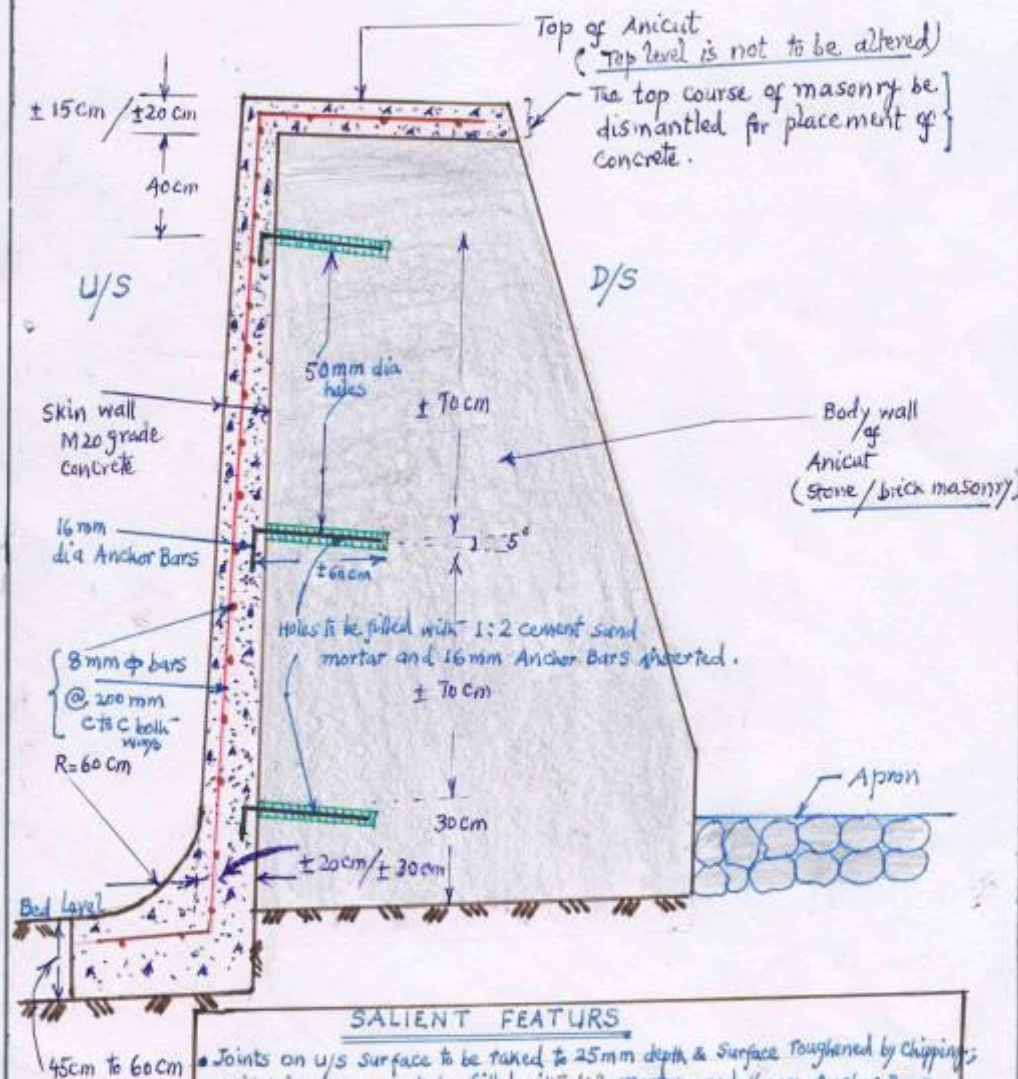 Top of Anicut
( Top level is not to be altered)
The top course of masonry be
dismantled for placement of
concrete.
± 15cm / ±20cm
40cm
U/S
D/S
50mm dia
holes
± 70cm
Skin wall
M20 grade
concrete
Body wall
of
Anicut
(stone/brick masonry)
16mm
dia Anchor Bars
5°
±60cm
Holes to be filled with 1:2 cement sand
mortar and 16mm Anchor Bars inserted.
± 70cm
8mm ϕ bars
@ 200mm
C to C both
ways
R=60cm
Apron
30cm
±20cm/±30cm
Bed level
SALIENT FEATURS
45cm to 60cm
• Joints on U/S surface to be raked to 25mm depth & Surface roughened by chipping;